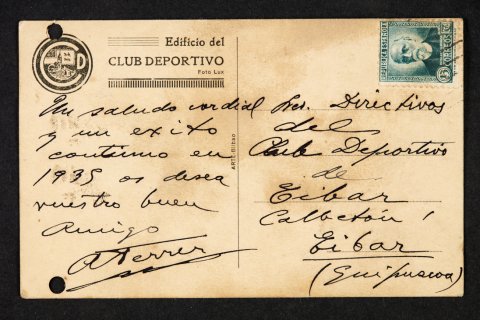 Edificio del
CLUB DEPORTIVO
Foto Lux
CD
Un saludo cordial
y un exito
continuo en
1935 os desea
vuestro buen
Amigo
A Ferrer
ARTE-Bilbao
REPUBLICA ESPAÑOLA
CORREOS
15
Sres. Directivos
del
Club Deportivo
de
Eibar
Calbetón 1
Eibar
(Guipuscoa)